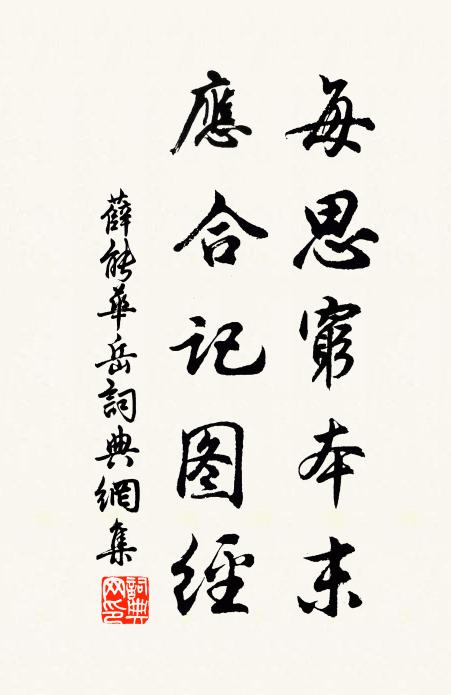 每思窮本末
應合记图經
薛能華岳詞典網集
詞典网印